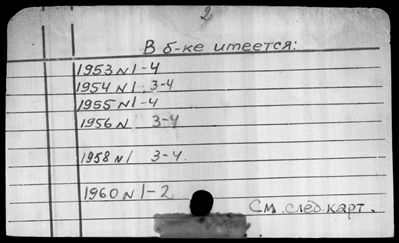 2
В б-ке имеется:
1953 N 1-4
1954 N 1, 3-4
1955 N 1-4
1956 N 3-4
1958 N 1 3-4.
1960 N 1-2
См. след. карт.